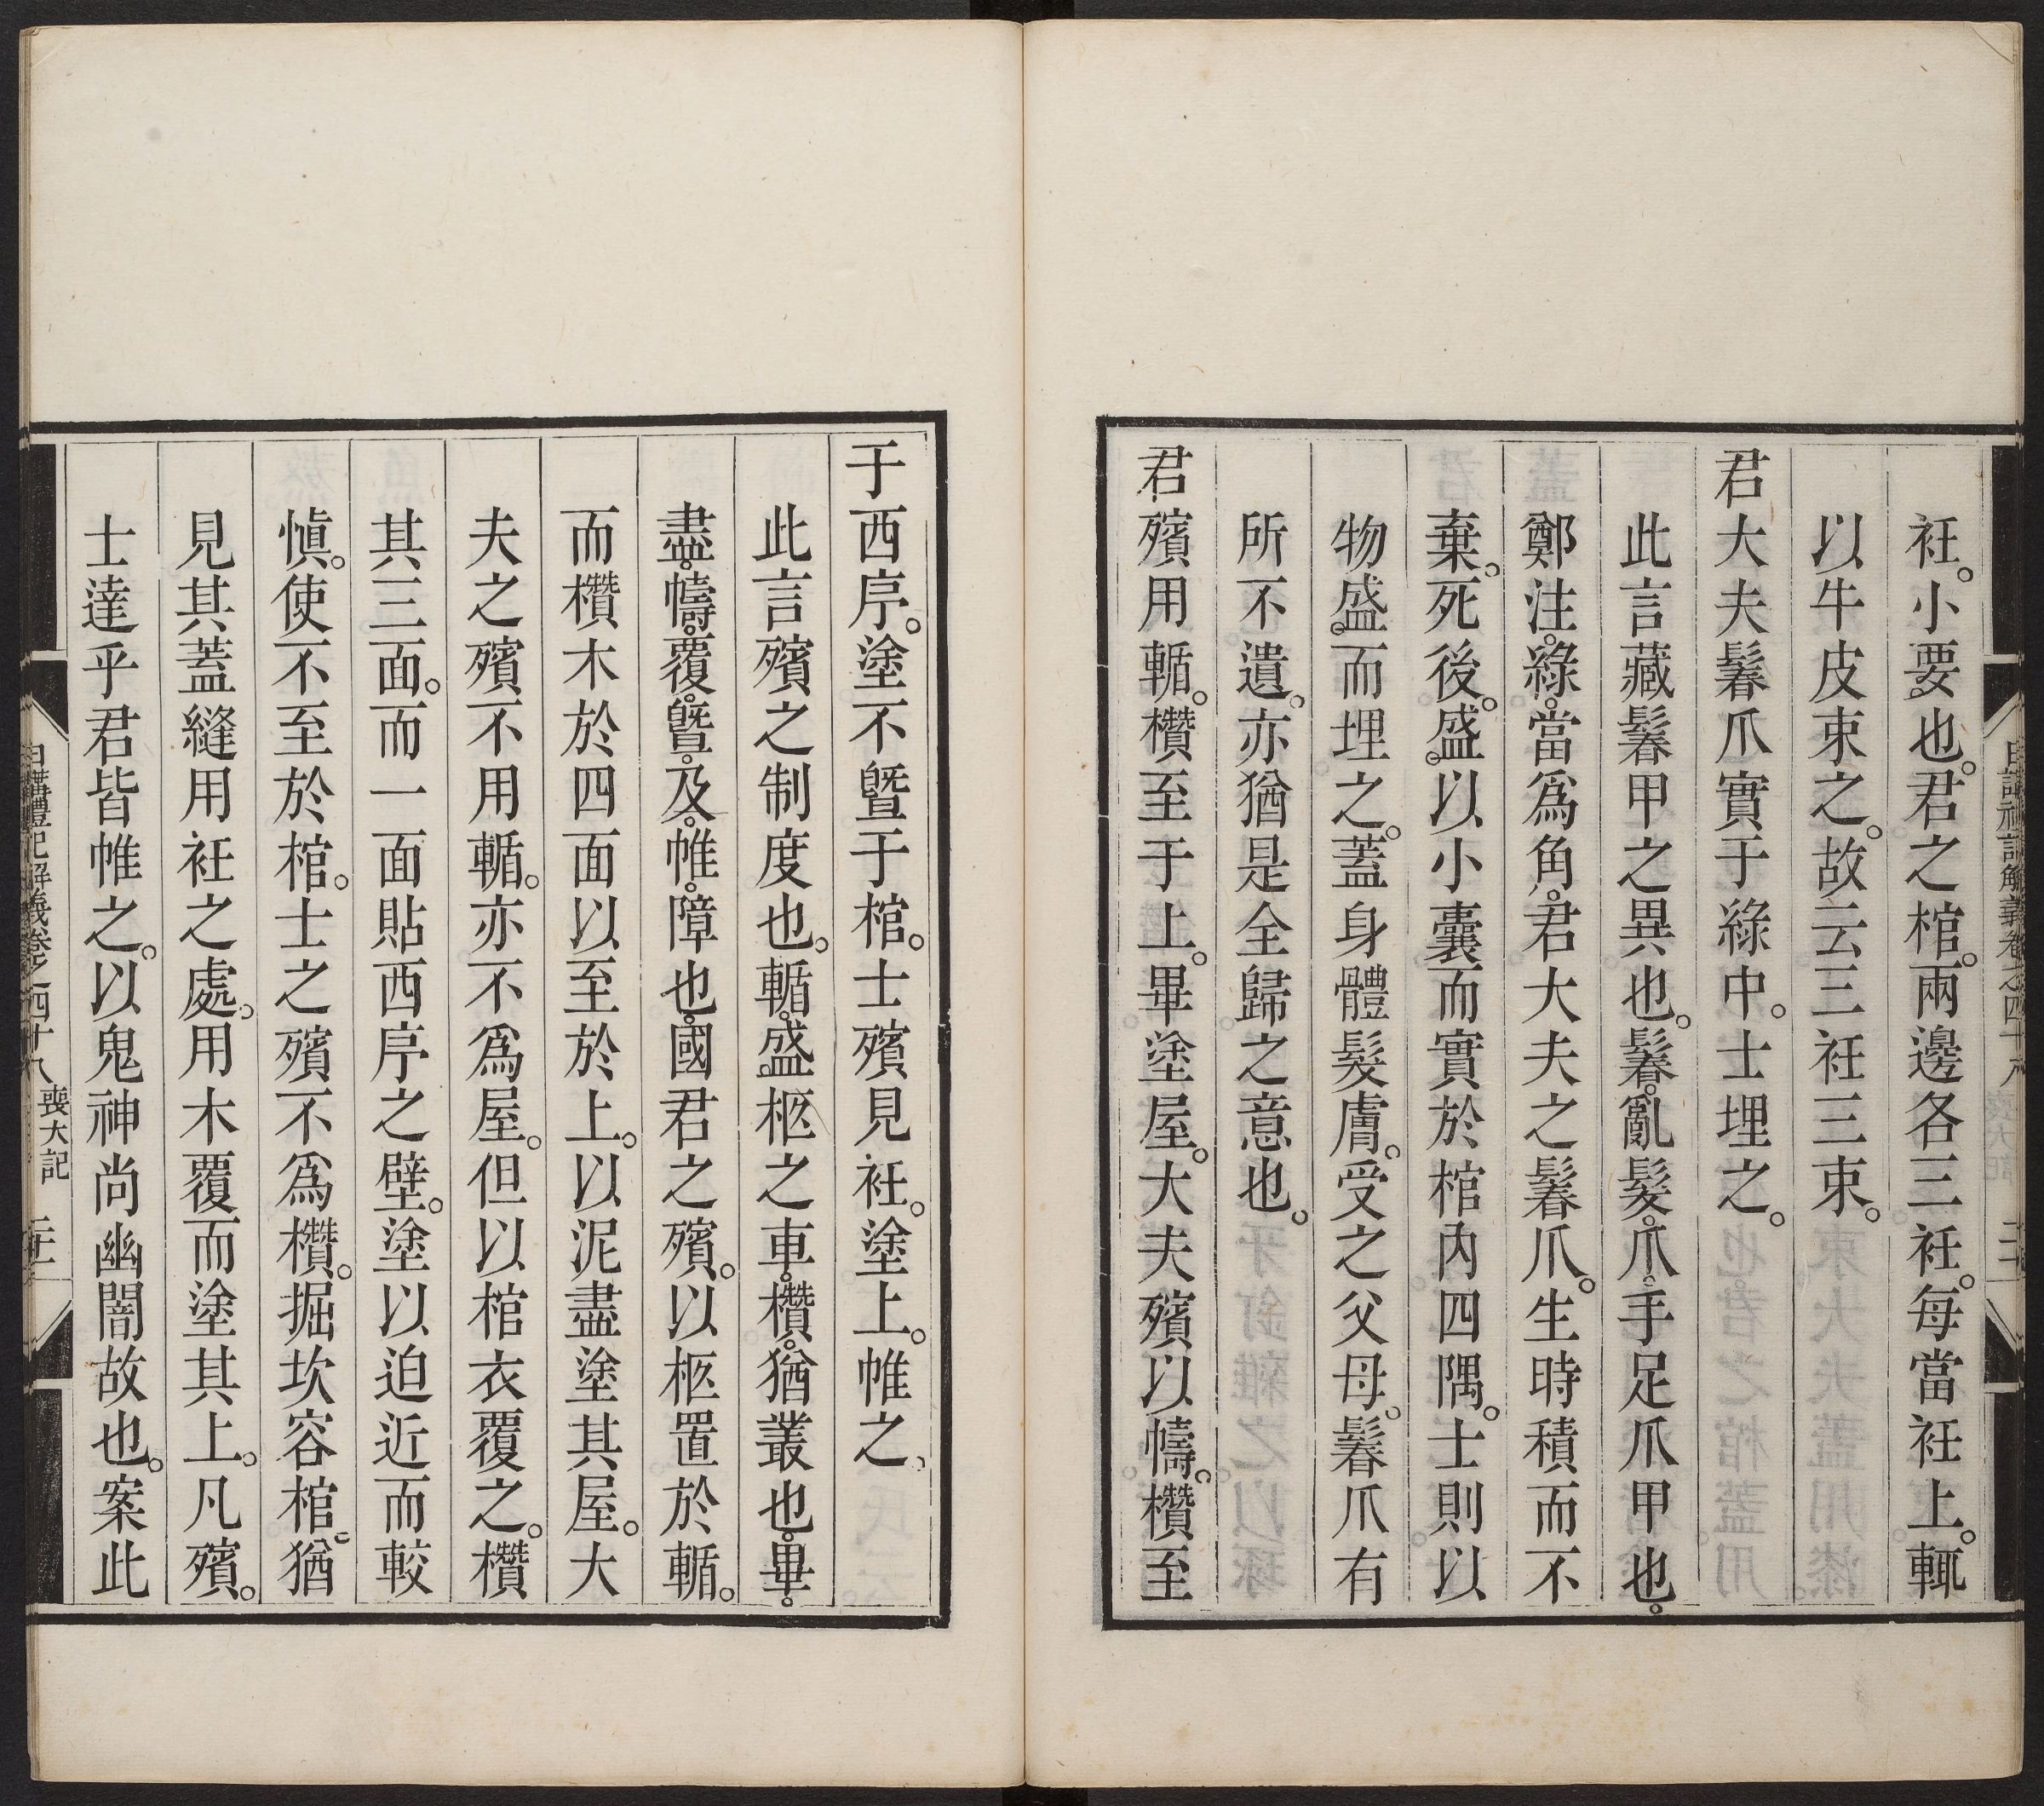 衽。小要也。君之棺。兩邊各三衽。每當衽上。輒
以牛皮束之。故云三衽三束。
君大夫鬊爪實于綠中。士埋之。
此言藏鬊甲之異也。鬊。亂髮。爪。手足爪甲也。
鄭注。綠。當爲角。君大夫之鬊爪。生時積而不
棄。死後。盛以小囊而實於棺內四隅。士則以
物盛。而埋之。蓋身體髮膚。受之父母。鬊爪有
所不遺。亦猶是全歸之意也。
君殯用輴。欑至于上。畢塗屋。大夫殯以幬。欑至
于西序。塗不曁于棺。士殯見衽。塗上。帷之。
此言殯之制度也。輴。盛柩之車。欑。猶叢也。畢。
盡。幬。覆。曁。及。帷。障也。國君之殯。以柩置於輴。
而欑木於四面以至於上。以泥盡塗其屋。大
夫之殯不用輴。亦不爲屋。但以棺衣覆之。欑
其三面。而一面貼西序之壁。塗以迫近而較
愼。使不至於棺。士之殯不爲欑。掘坎容棺。猶
見其蓋縫用衽之處。用木覆而塗其上。凡殯。
士達乎君皆帷之。以鬼神尚幽闇故也。案此
日講禮記解義卷之四十八 喪大記